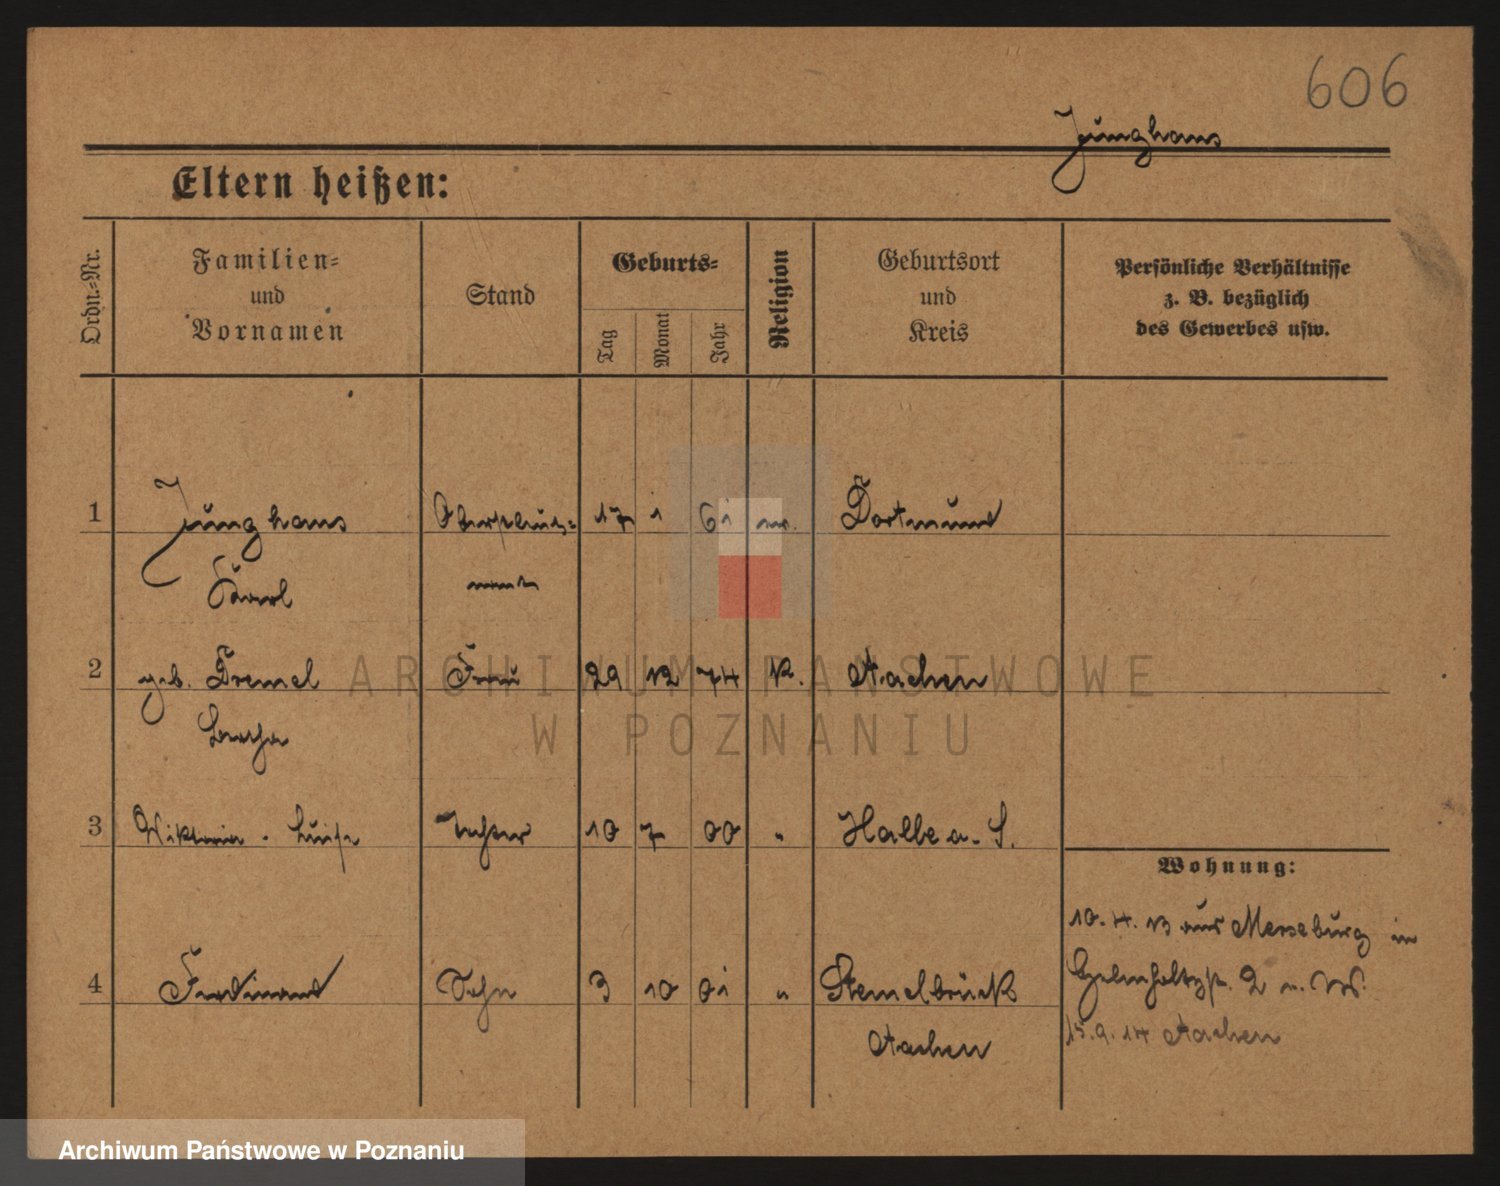 606
Junghans
Eltern heißen:
Ordn.-Nr.
Familien-
und
Vornamen
Stand
Geburts-
Tag
Monat
Jahr
Religion
Geburtsort
und
Kreis
Persönliche Verhältnisse
z. B. bezüglich
des Gewerbes usw.
1 Junghans 17 1 61 Dortmund
Karl
2 geb. Dremel Frau 29 12 74 K. Aachen
Bertha
3 Viktoria - Luise Tochter 10 7 00 " Halle a. S.
Wohnung:
10. 4. 13 aus Merseburg in
4 Ferdinand Sohn 3 10 01 "
2
Aachen
15. 9. 14 Aachen
ARCHIWUM PAŃSTWOWE
W POZNANIU
Archiwum Państwowe w Poznaniu